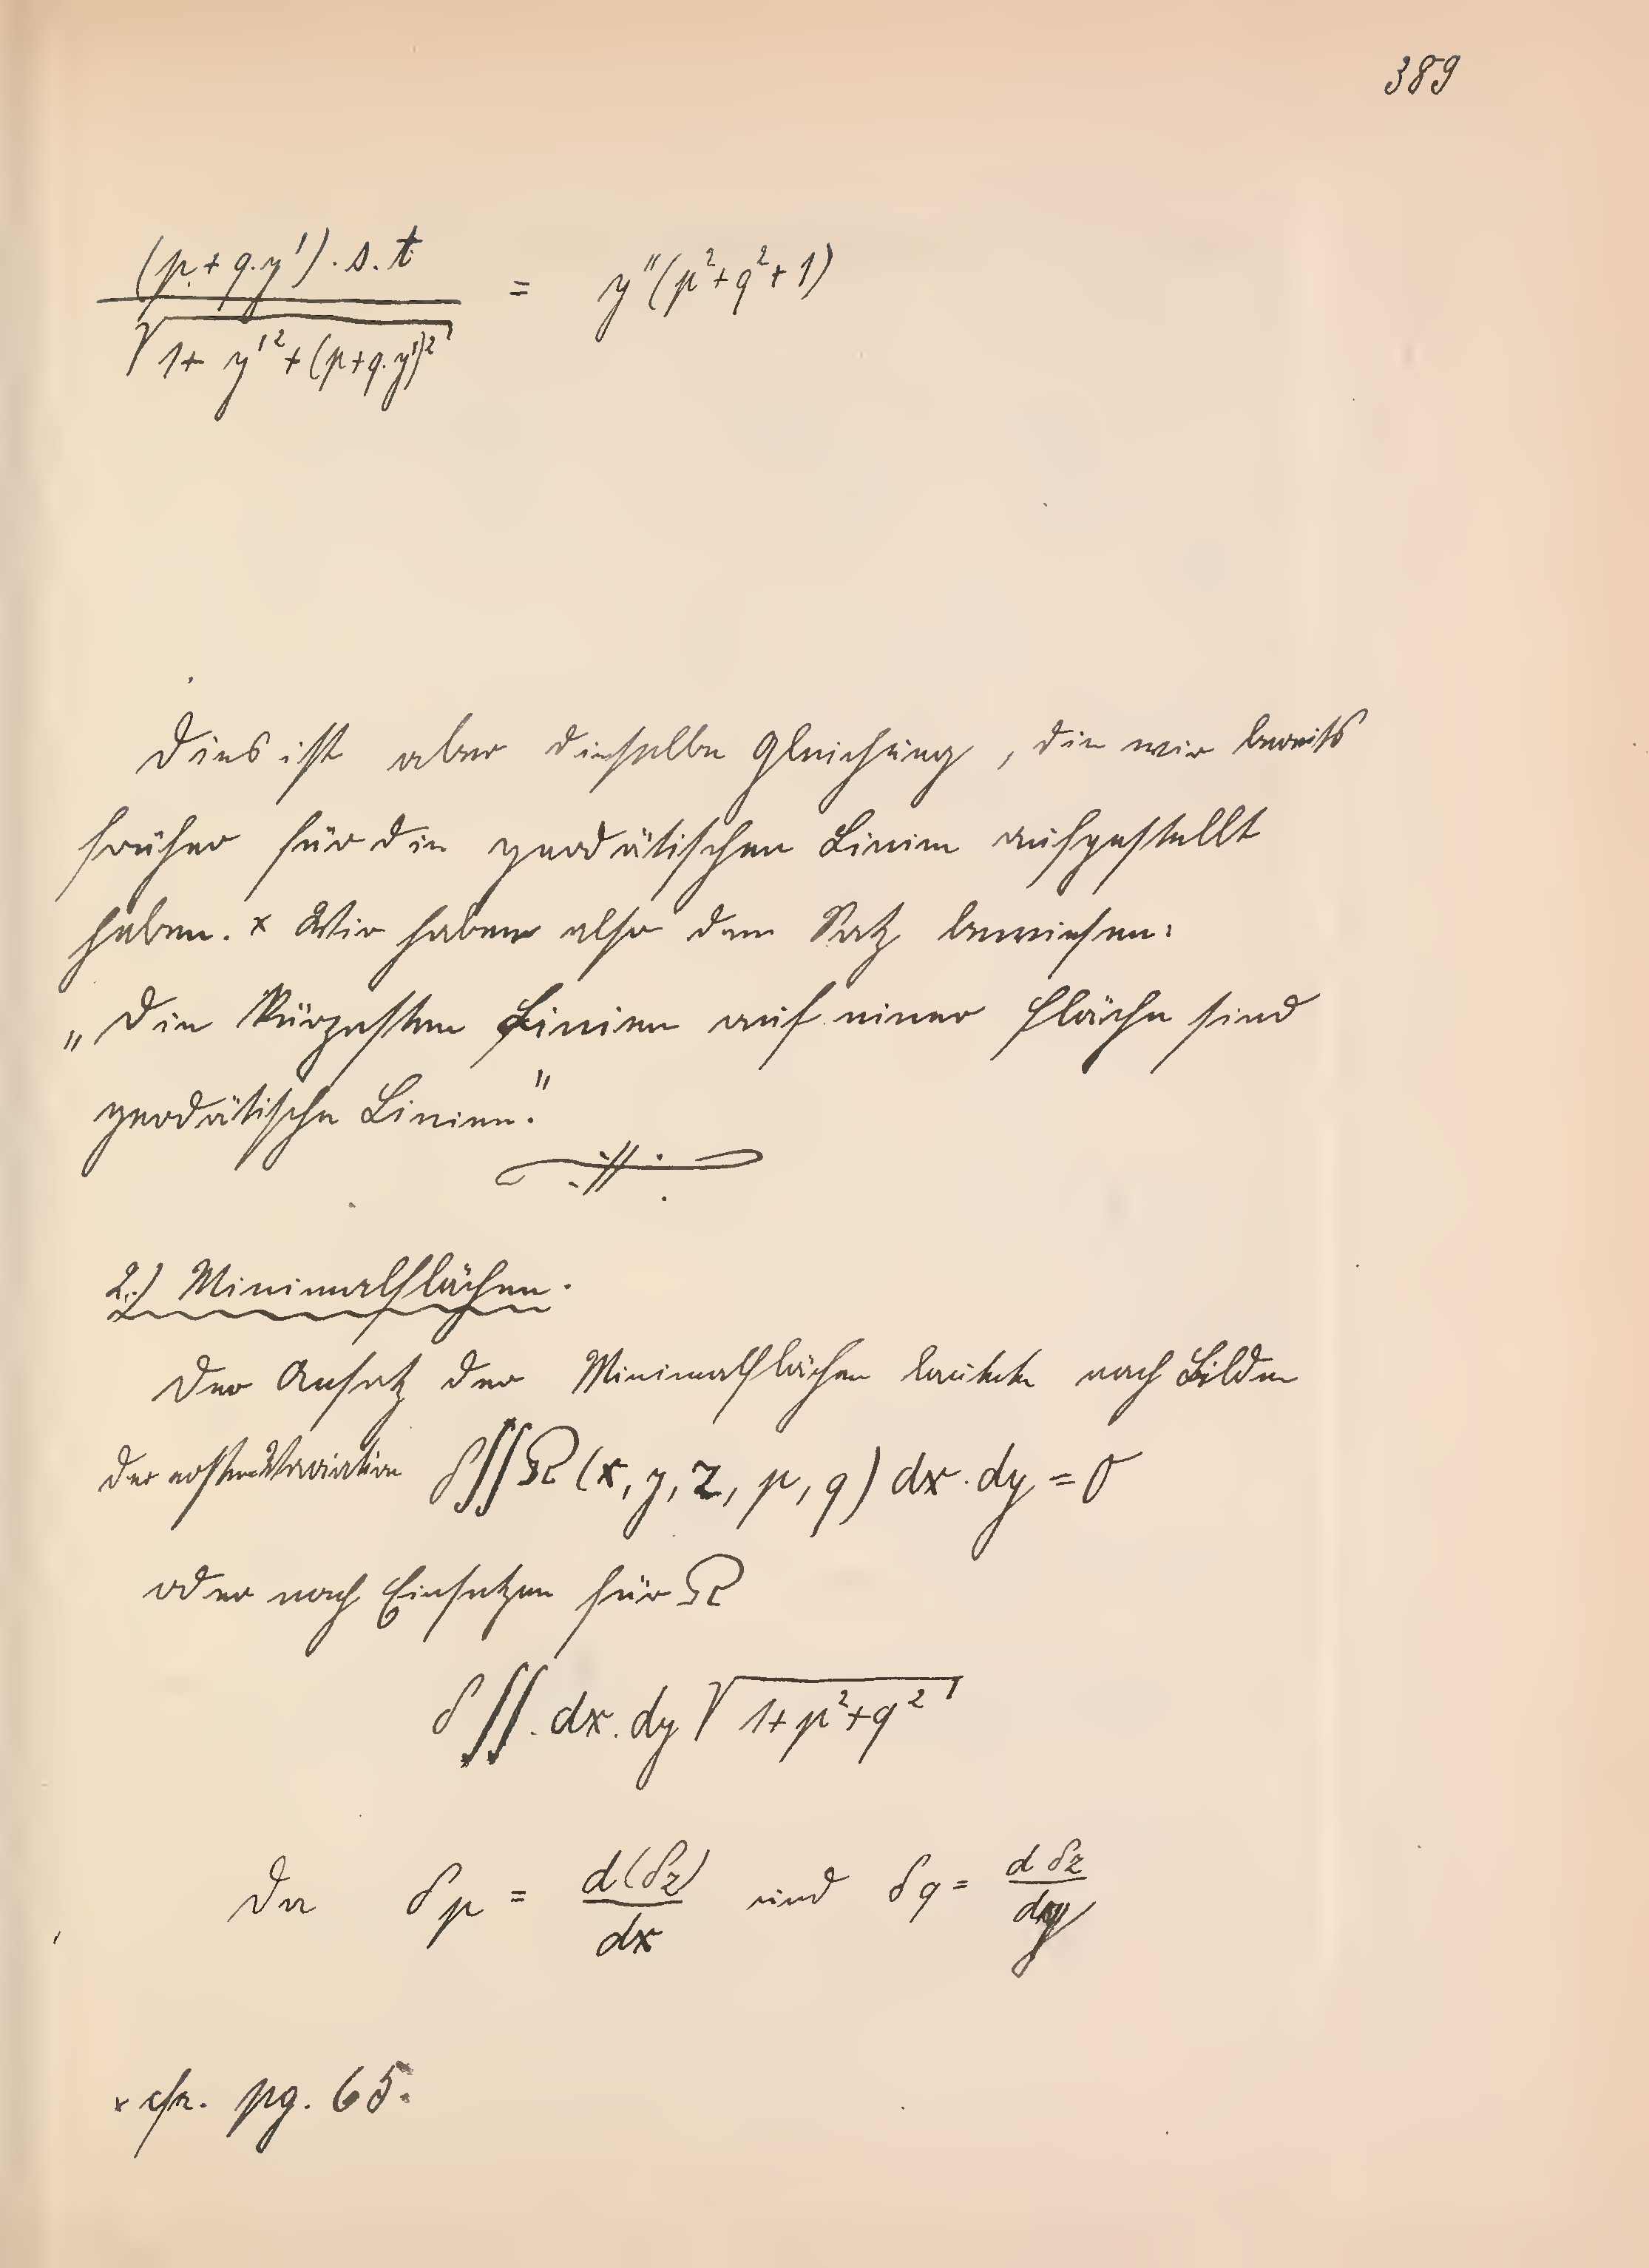 389
(p+q.y')·s.t / √(1+y'²+(p+q.y')²) = y''(p²+q²+1)
Dies ist aber dieselbe Gleichung, die wir bereits
früher für die geodätischen Linien aufgestellt
haben. × Wir haben also den Satz bewiesen:
„Die kürzesten Linien auf einer Fläche sind
geodätische Linien."
2.) Minimalflächen.
Der Ansatz der Minimalflächen lautete nach Bilden
der ersten Variation δ∬Ω(x, y, z, p, q) dx·dy = 0
oder nach Einsetzen für Ω
δ∬.dx.dy √(1+p²+q²)
Da δp = d(δz)/dx und δq = d δz/dy
× cfr. pg. 65.